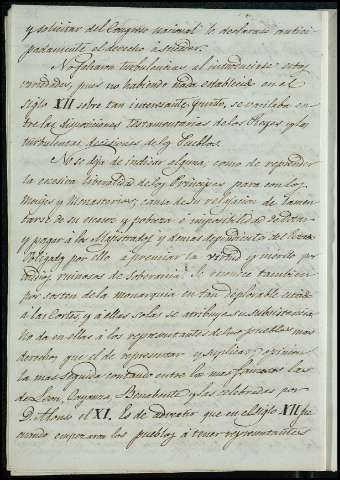 y solicitar del Congreso nacional le declarase antici
padamente el derecho à suceder.
No faltaron turbulencias al introducirse estas
novedades, pues no habiendo nada establecido en el
siglo XII sobre tan interesante punto, se vacilaba en
tre las disposiciones testamentarias de los Reyes y las
turbulentas decisiones de los Pueblos.
No se deja de indicar alguna, como de reprender
la excesiva liberalidad de los Principes para con los
Monjes y Monasterios, causa de su relajacion, de lamen
tarse de su escasez y pobreza è imposibilidad de
y pagar à los Magistrados y demas dependientes del
por ello à premiar la virtud y merito por
medios ruinosos de soberania. Se reunio tambien
por sosten de la monarquia en tan deplorable
à las Cortes, y à ellas solas se atribuye su subsistencia,
no da en ellas à los representantes de los pueblos mas
derechos que el de representar y suplicar, y
la mas seguida contando entre las mas famosas las
de Leon, Coyanza, Benabente y las celebradas por
D. Alonso el XI. Es de advertir que en el siglo XII fue
cuando empezaron los pueblos à tener representantes